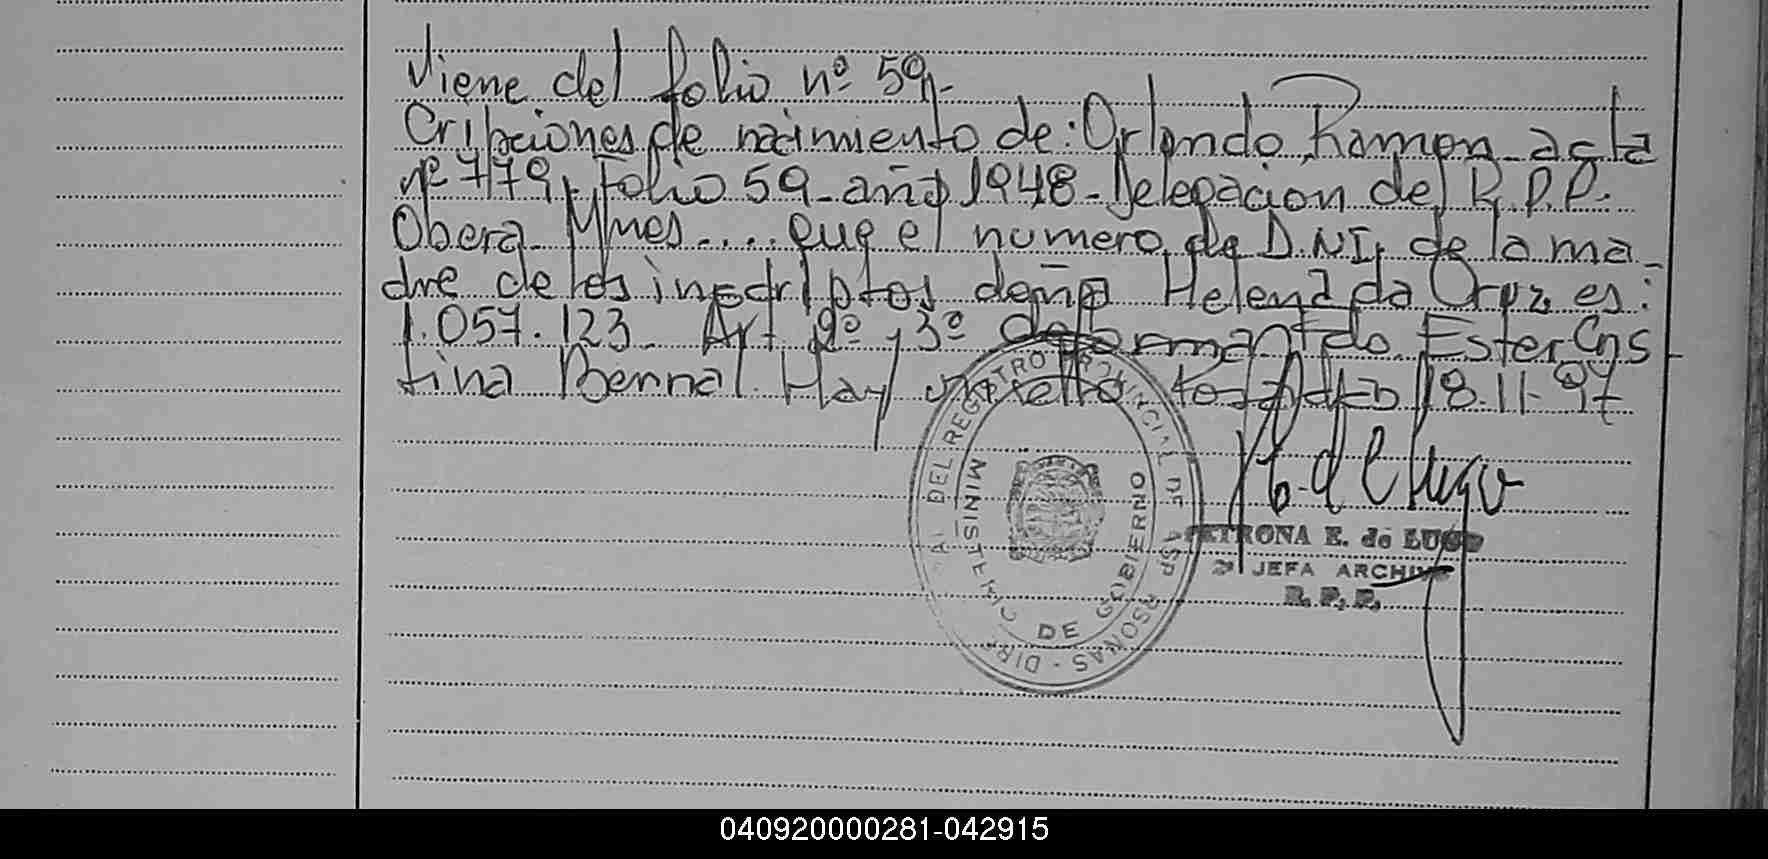 Viene del folio nº 59.-
Cripciones de nacimiento de: Orlando Ramon acta
nº 779, folio 59 - año 1948 - Delegacion del R.P.P.
Obera Mnes.... que el numero de D.N.I. de la ma-
dre de los inscriptos doña Helena da Cruz es:
1.057.123 - Art 2º y 3º do. Ester Cris-
tina Bernal. Hay un sello 18.11.97
PETRONA E. de LUGO
JEFA ARCHIVO
R. P. P.
DEL REGISTRO PROVINCIAL DE LAS PERSONAS - DIR.
MINISTERIO DE GOBIERNO
040920000281-042915